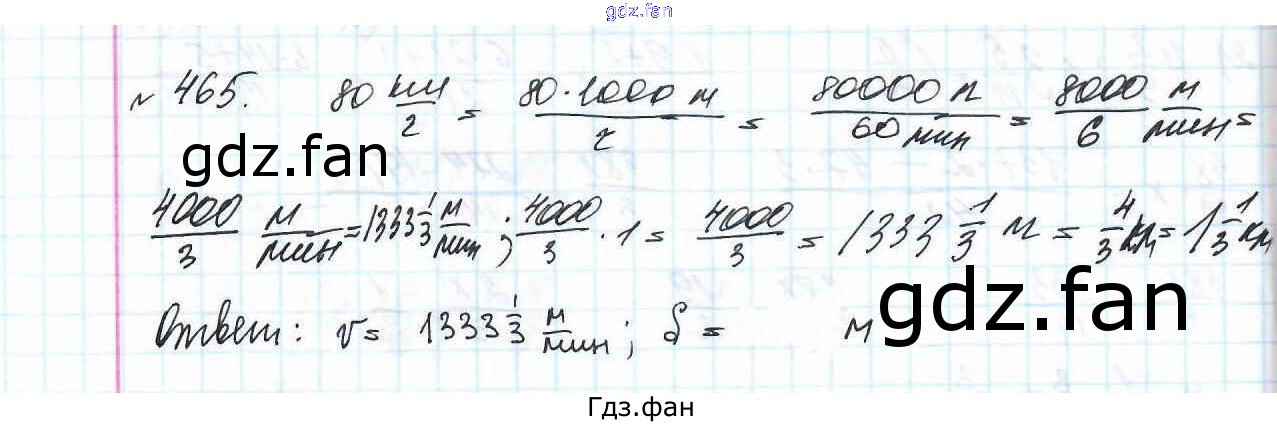 gdz.fan
№ 465. 80 км/г = 80·1000 м/г = 80000 м/60 мин = 8000/6 м/мин =
gdz.fan
4000/3 м/мин = 1333 1/3 м/мин ; 4000/3 · 1 = 4000/3 = 1333 1/3 м = 4/3 км = 1 1/3 км
gdz.fan
Ответ: v = 1333 1/3 м/мин ; S = м
Гдз.фан